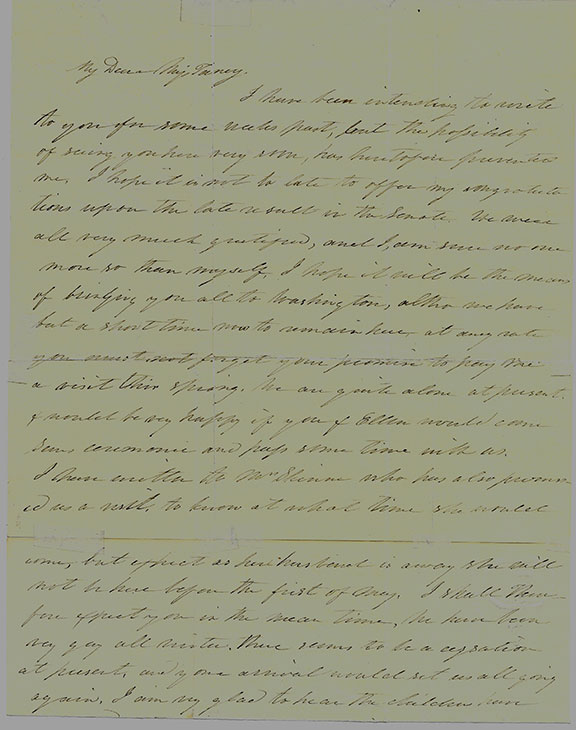 My Dear Mrs Taney.
I have been intending to write
to you for some weeks past, but the possibility
of seeing you here very soon, has heretofore prevented
me, I hope it is not to late to offer my congratula
tions upon the late result in the Senate. We were
all very much gratified, and I am sure no one
more so than myself. I hope it will be the means
of bringing you all to Washington, altho we have
but a short time now to remain here, at any rate
you must not forget your promise to pay me
a visit this spring. We are quite alone at present.
& would be very happy if you & Ellen would come
sans ceremonie and pass some time with us.
I have written to Mrs who has also promis
ed us a visit, to know at what time she would
come, but expect as her husband is away she will
not be here before the first of May. I shall there-
fore expect you in the mean time, We have been
very gay all winter. there seems to be a cessation
at present, and your arrival would set us all going
again. I am very glad to hear the children have